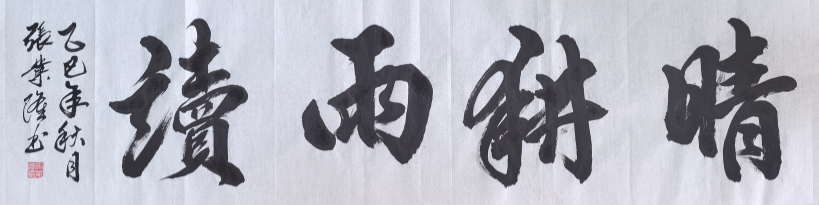 晴耕雨讀
乙巳年秋月
張業隆书